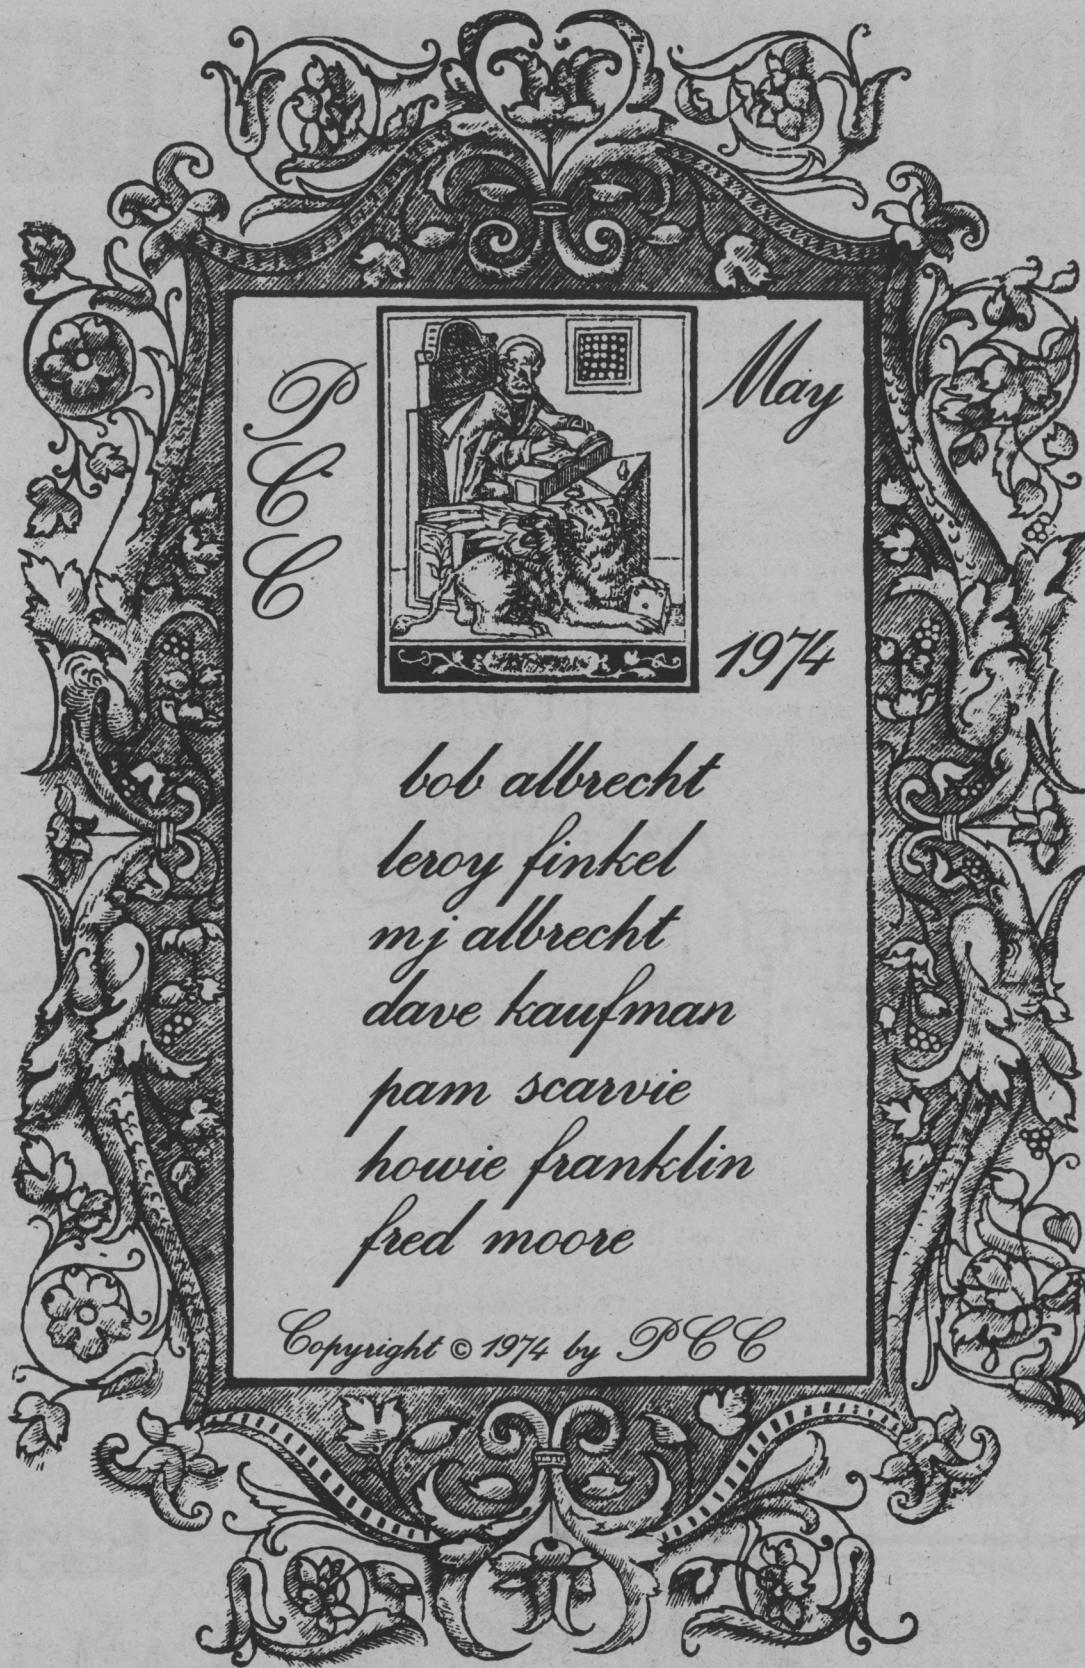 P
C
C
May
1974
bob albrecht
leroy finkel
mj albrecht
dave kaufman
pam scarvie
howie franklin
fred moore
Copyright © 1974 by PCC